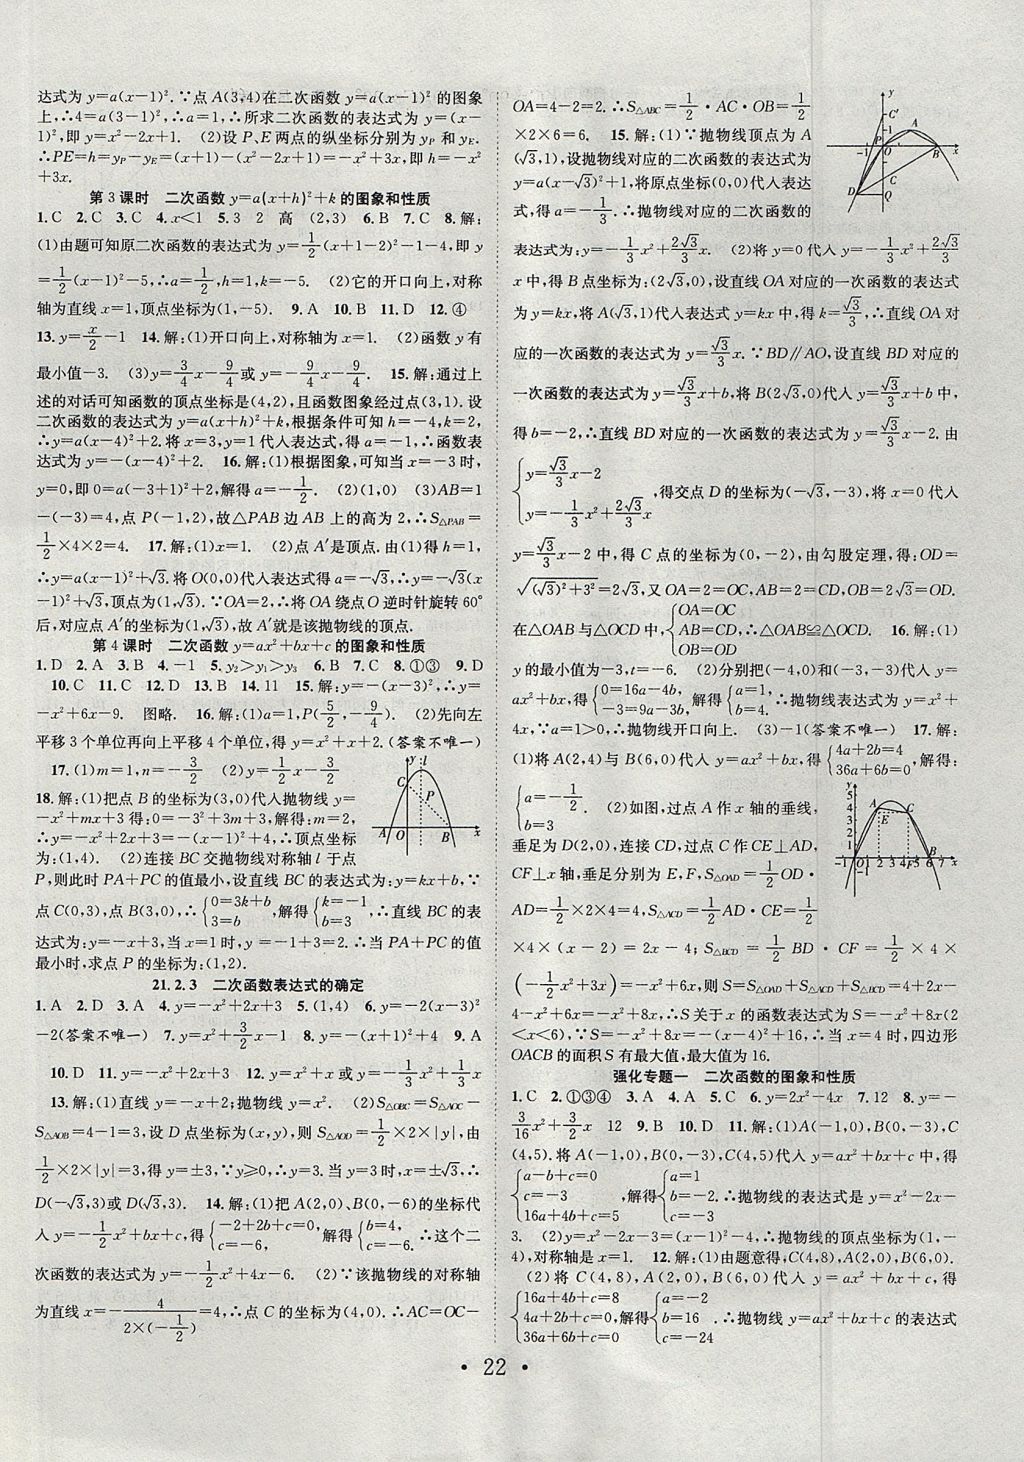 达式为 y=a(x-1)². ∵点 A(3,4)在二次函数 y=a(x-1)² 的图象
上,∴4=a(3-1)²,∴a=1,∴所求二次函数的表达式为 y=(x-
1)²,即 y=x²-2x+1. (2)设 P、E 两点的纵坐标分别为 yP 和 yE.
∴PE=h=yP-yE=(x+1)-(x²-2x+1)=-x²+3x,即 h=-x²
+3x.
第 3 课时 二次函数 y=a(x+h)²+k 的图象和性质
1. C 2. C 3. C 4. x<1 5. 3 2 高 (2,3) 6. B 7. C 8. 解:
(1)由题可知原二次函数的表达式为 y=1/2(x+1-2)²-1-4,即 y
=1/2(x-1)²-5,∴a=1/2,h=1,k=-5. (2)它的开口向上,对称
轴为直线 x=1,顶点坐标为(1,-5). 9. A 10. B 11. D 12. ④
13. y=x/2-1 14. 解:(1)开口向上,对称轴为 x=1. (2)函数 y 有
最小值-3. (3)y=3/4x-9/4或 y=-3/4x-9/4. 15. 解:通过上
述的对话可知函数的顶点坐标是(4,2),且函数图象经过点(3,1). 设
二次函数的表达式为 y=a(x+h)²+k,根据条件可知 h=-4,k=2,
∴y=a(x-4)²+2. 将 x=3,y=1 代入表达式,得 a=-1,∴函数表
达式为 y=-(x-4)²+2. 16. 解:(1)根据图象,可知当 x=-3 时,
y=0,即 0=a(-3+1)²+2,解得 a=-1/2. (2)(1,0) (3)AB=1
-(-3)=4,点 P(-1,2),故△PAB 边 AB 上的高为 2,∴S△PAB=
1/2×4×2=4. 17. 解:(1)x=1. (2)点 A′是顶点. 由(1)得 h=1,
∴y=a(x-1)²+√3. 将 O(0,0)代入表达式得 a=-√3,∴y=-√3(x
-1)²+√3,顶点为(1,√3). ∵OA=2,∴将 OA 绕点 O 逆时针旋转 60°
后,对应点 A′的坐标为(1,√3),故 A′就是该抛物线的顶点.
第 4 课时 二次函数 y=ax²+bx+c 的图象和性质
1. D 2. A 3. B 4. -1 5. y₂>y₁>y₃ 6. B 7. C 8. ①③ 9. D
10. C 11. C 12. D 13. B 14. 11 15. 解:y=-(x-3)²,∴y=
-x²+6x-9. 图略. 16. 解:(1)a=1,P(5/2,-9/4). (2)先向左
平移 3 个单位再向上平移 4 个单位,得 y=x²+x+2. (答案不唯一)
17. (1)m=1,n=-3/2 (2)y=1/2x-3/2
18. 解:(1)把点 B 的坐标为(3,0)代入抛物线 y=
-x²+mx+3 得:0=-3²+3m+3,解得:m=2,
∴y=-x²+2x+3=-(x-1)²+4,∴顶点坐标
为:(1,4). (2)连接 BC 交抛物线对称轴 l 于点
P,则此时 PA+PC 的值最小,设直线 BC 的表达式为:y=kx+b,∵
点 C(0,3),点 B(3,0),∴{0=3k+b 3=b,解得{k=-1 b=3,∴直线 BC 的表
达式为:y=-x+3,当 x=1 时,y=-1+3=2. ∴当 PA+PC 的值
最小时,求点 P 的坐标为:(1,2).
21.2.3 二次函数表达式的确定
1. A 2. D 3. A 4. y=-x²+2x+3 5. (1,4) 6. y=-2(x-3)²
-2(答案不唯一) 7. y=x²+3/2x-1 8. y=-(x+1)²+4 9. A
10. D 11. y=-x²+2x+3 12. y=x²+x或y=-1/3x²+1/3x
13. 解:(1)直线 y=-x+2;抛物线 y=x². (2)S△OBC=S△AOC-
S△AOB=4-1=3,设 D 点坐标为(x,y),则 S△AOD=1/2×2×|y|,由
1/2×2×|y|=3,得 y=±3,∵y≥0,∴y=3. 当 y=3 时,x=±√3,∴
D(-√3,3)或 D(√3,3). 14. 解:(1)把 A(2,0)、B(0,-6)的坐标代
入 y=-1/2x²+bx+c,得{-2+2b+c=0, c=-6,解得{b=4, c=-6.∴这个二
次函数的表达式为 y=-1/2x²+4x-6. (2)∵该抛物线的对称轴
为直线 x=-4/(2×(-1/2))=4,∴点 C 的坐标为(4,0). ∴AC=OC-
OA=4-2=2. ∴S△ABC=1/2·AC·OB=1/2
×2×6=6. 15. 解:(1)∵抛物线顶点为 A
(√3,1),设抛物线对应的二次函数的表达式为 y
=a(x-√3)²+1,将原点坐标(0,0)代入表达
式,得 a=-1/3. ∴抛物线对应的二次函数的
表达式为:y=-1/3x²+2√3/3x. (2)将 y=0 代入 y=-1/3x²+2√3/3
x 中,得 B 点坐标为:(2√3,0),设直线 OA 对应的一次函数的表达式
为 y=kx,将 A(√3,1)代入表达式 y=kx 中,得 k=√3/3,∴直线 OA 对
应的一次函数的表达式为 y=√3/3x. ∵BD∥AO,设直线 BD 对应的
一次函数的表达式为 y=√3/3x+b,将 B(2√3,0)代入 y=√3/3x+b 中,
得 b=-2,∴直线 BD 对应的一次函数的表达式为 y=√3/3x-2. 由
{y=√3/3x-2 y=-1/3x²+2√3/3x,得交点 D 的坐标为(-√3,-3),将 x=0 代入
y=√3/3x-2 中,得 C 点的坐标为(0,-2),由勾股定理,得:OD=
√((√3)²+3²)=2√3,又 OA=2=OC,AB=2=CD,OB=2√3=OD.
在△OAB 与△OCD 中,{OA=OC AB=CD OB=OD,∴△OAB≌△OCD. 16. 解:(1)
y 的最小值为-3,t=-6. (2)分别把(-4,0)和(-3,-3)代入 y=
ax²+bx,得{0=16a-4b, -3=9a-3b,解得{a=1, b=4. ∴抛物线表达式为 y=x²+
4x,∵a=1>0,∴抛物线开口向上. (3)-1(答案不唯一) 17. 解:
(1)将 A(2,4)与 B(6,0)代入 y=ax²+bx,得{4a+2b=4 36a+6b=0,解得
{a=-1/2, b=3. (2)如图,过点 A 作 x 轴的垂线,
垂足为 D(2,0),连接 CD,过点 C 作 CE⊥AD,
CF⊥x 轴,垂足分别为 E,F,S△OAD=1/2OD·
AD=1/2×2×4=4,S△ACD=1/2AD·CE=1/2
×4×(x-2)=2x-4;S△BCD=1/2BD·CF=1/2×4×
(-1/2x²+3x)=-x²+6x,则 S=S△OAD+S△ACD+S△BCD=4+2x-
4-x²+6x=-x²+8x,∴S 关于 x 的函数表达式为 S=-x²+8x(2
<x<6),∵S=-x²+8x=-(x-4)²+16,∴当 x=4 时,四边形
OACB 的面积 S 有最大值,最大值为 16.
强化专题一 二次函数的图象和性质
1. C 2. ①③④ 3. A 4. A 5. C 6. y=2x²-4x 7. 12 8. y=-
3/16x²+3/2x 12 9. B 10. D 11. 解:(1)A(-1,0),B(0,-3),C
(4,5). 将 A(-1,0),B(0,-3),C(4,5)代入 y=ax²+bx+c 中,得
{a-b+c=0 c=-3 16a+4b+c=5,解得{a=1 b=-2. c=-3∴抛物线的表达式是 y=x²-2x-
3. (2)y=x²-2x-3=(x-1)²-4,∴抛物线的顶点坐标为(1,-
4),对称轴是 x=1. 12. 解:(1)由题意得,C(4,8),A(2,0),B(6,0).
(2)将 C(4,8),A(2,0),B(6,0)代入 y=ax²+bx+c,得
{16a+4b+c=8 4a+2b+c=0, 36a+6b+c=0解得{a=-2 b=16 c=-24. ∴抛物线 y=ax²+bx+c 的表达式
· 22 ·